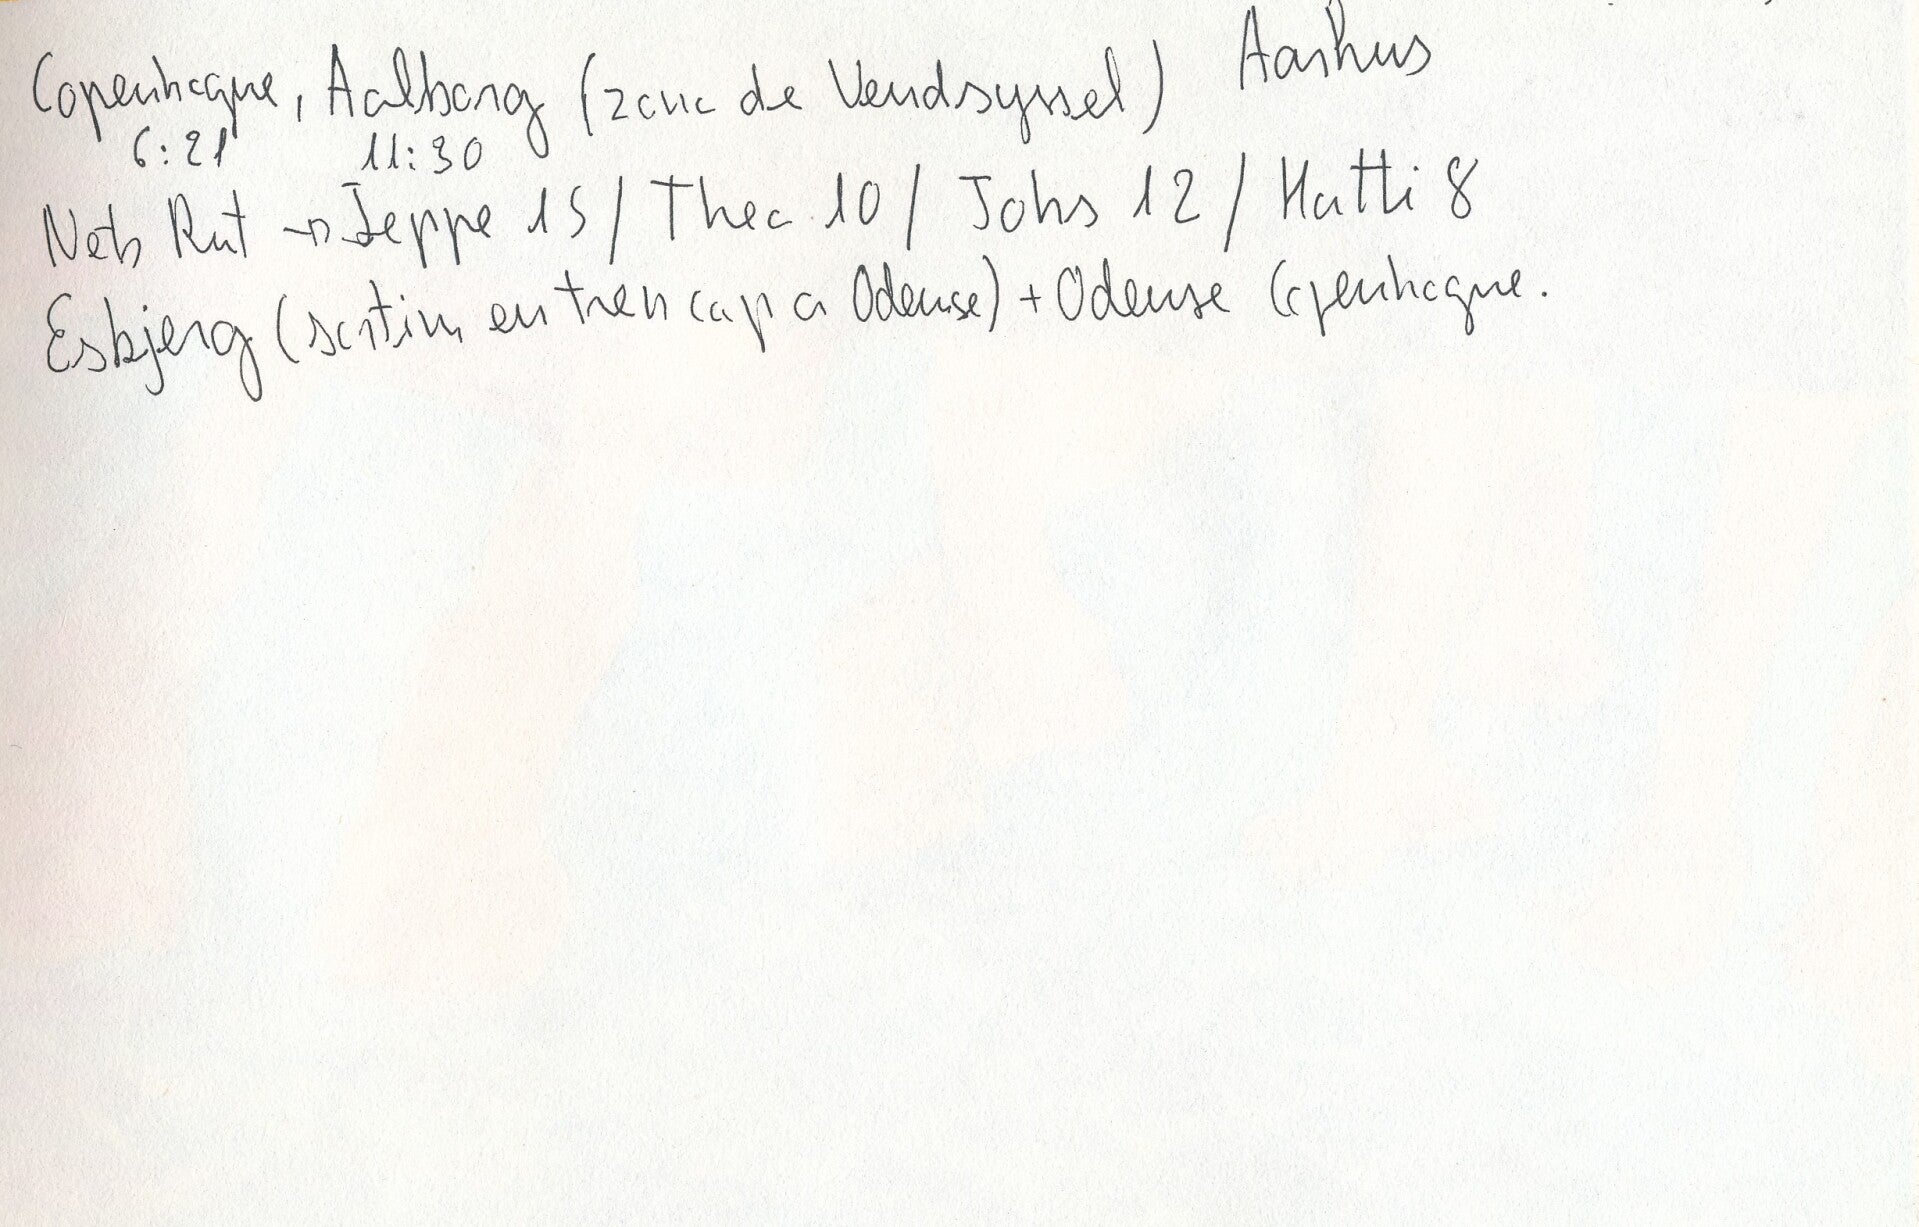 Copenhague, Aalborg (zona de Vendsyssel) Aarhus
6:21 11:30
Nets Rut → Jeppe 15 / Thea 10 / Johs 12 / Matti 8
Esbjerg (sortim en tren cap a Odense) + Odense Copenhague.